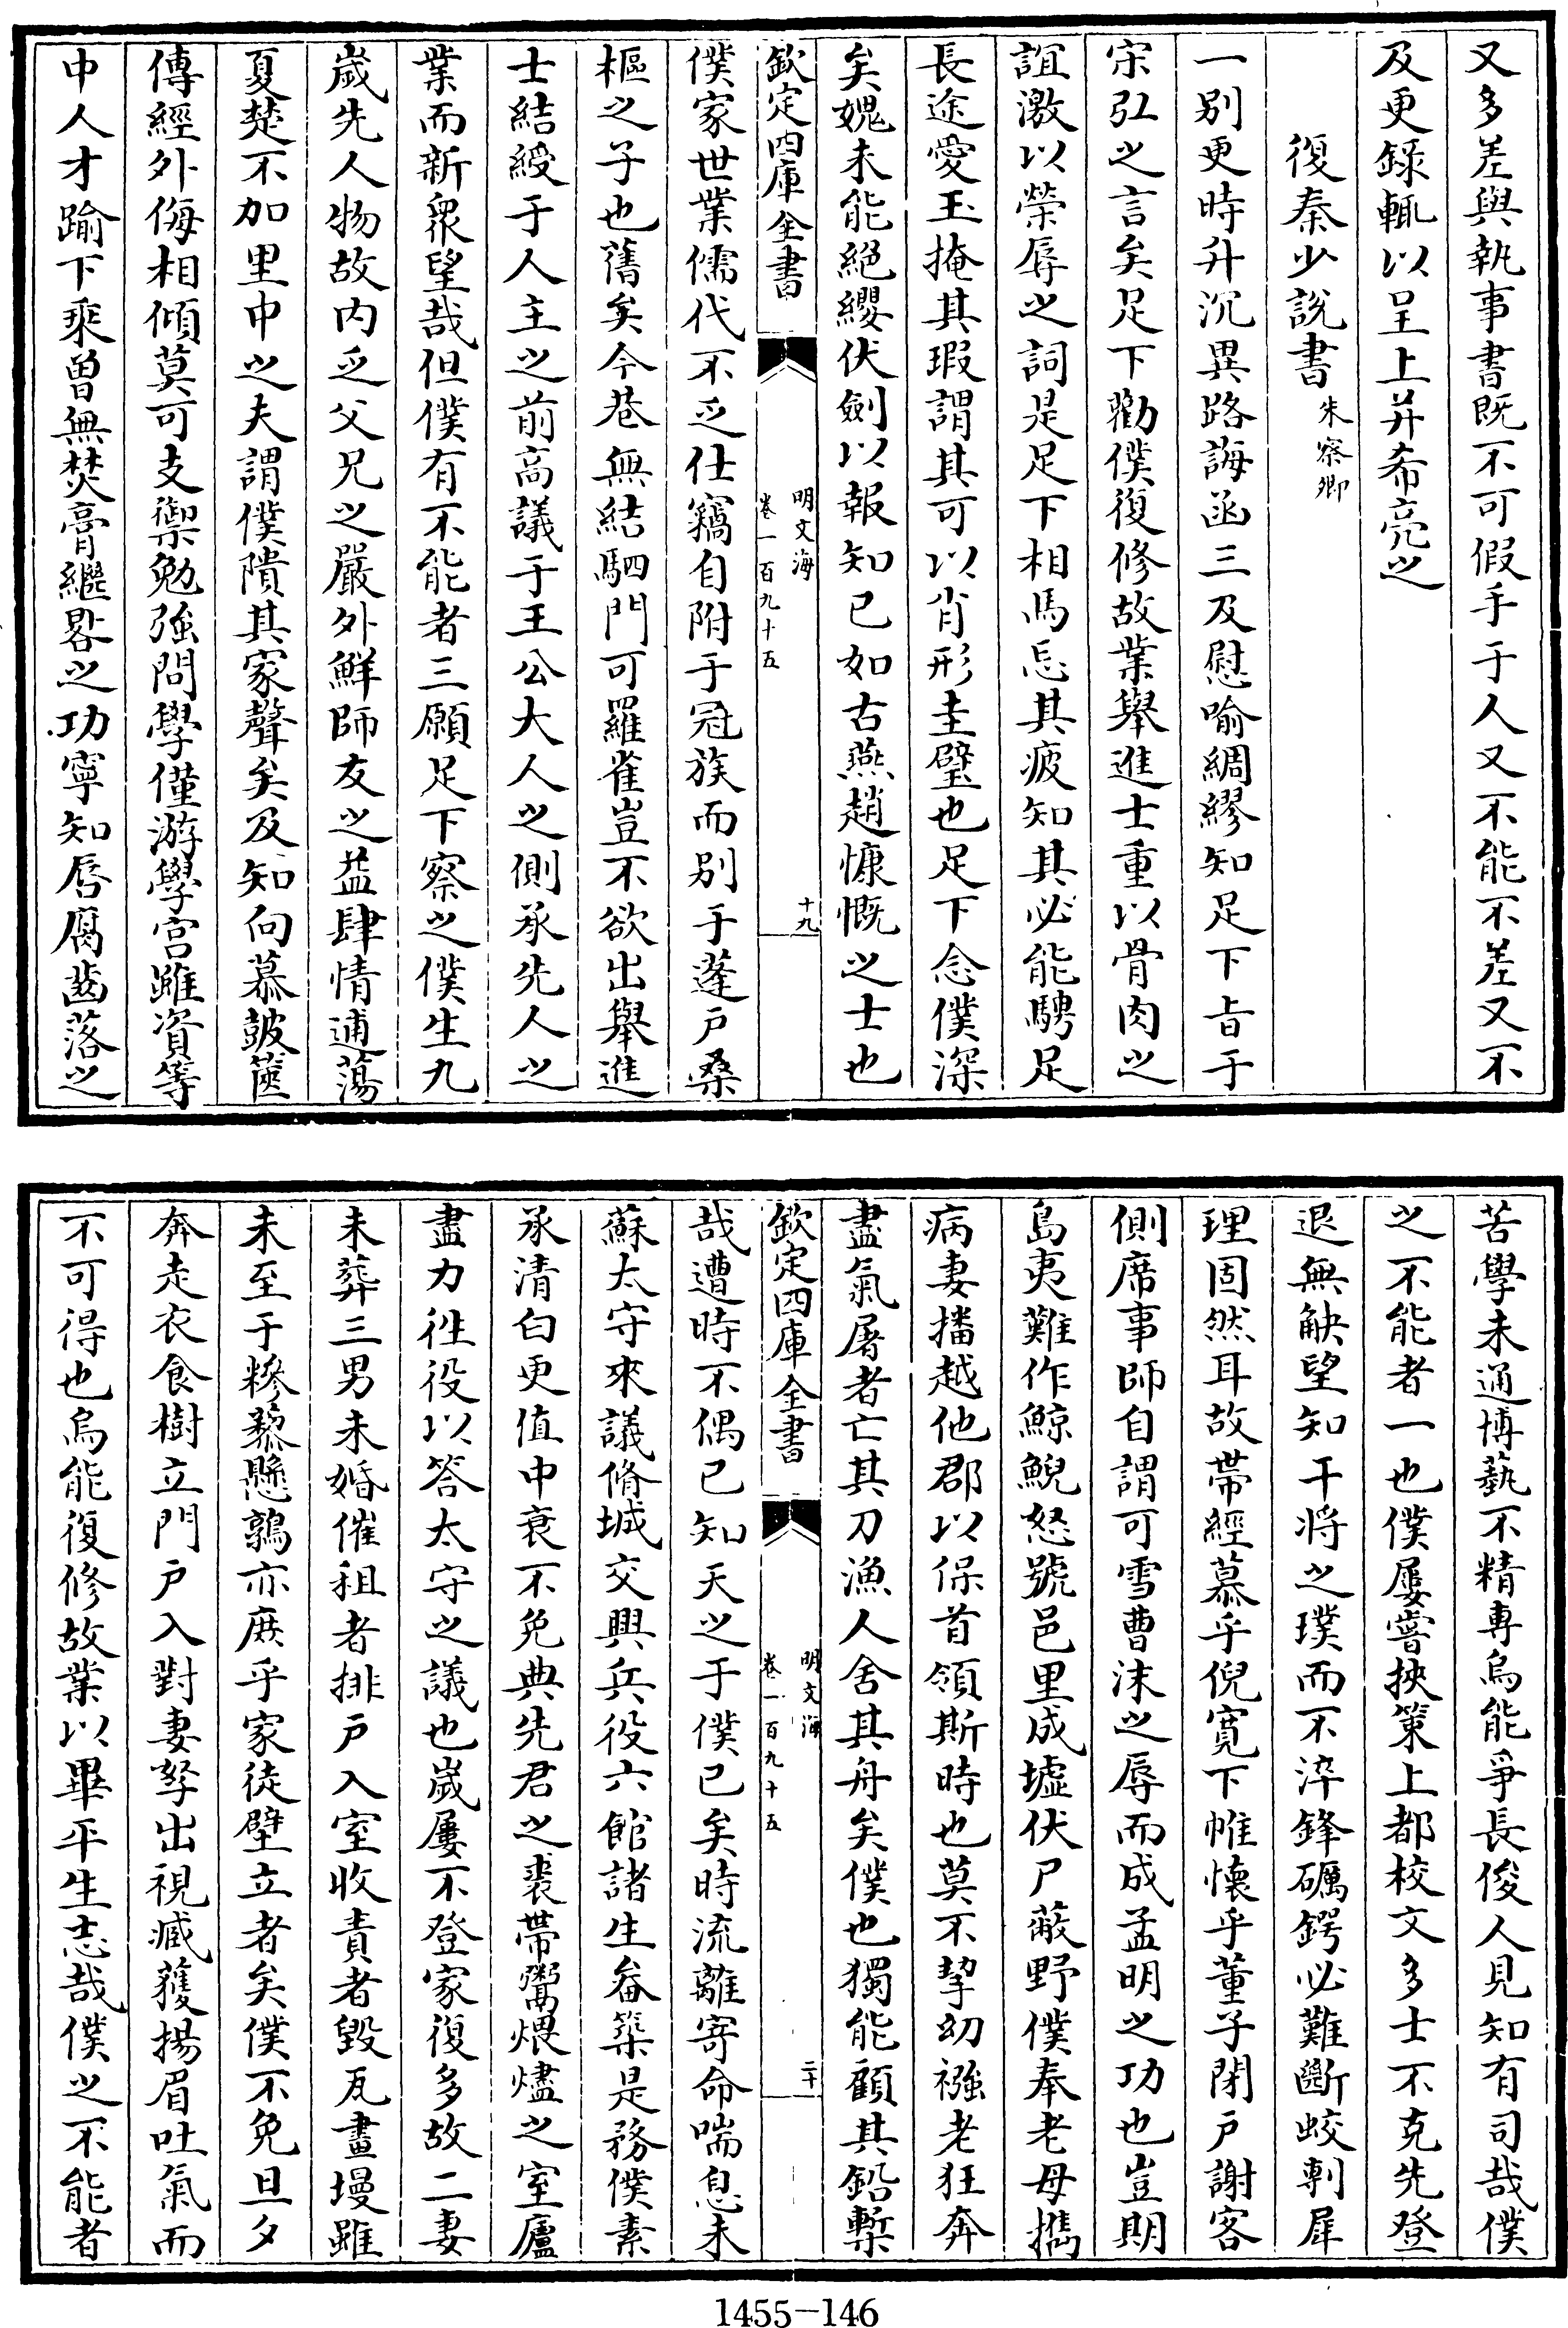 又多差與執事書既不可假手于人又不能不差又不
及更錄輒以呈上并希亮之
復秦少說書 朱察卿
一別更時升沉異路誨函三及慰喻綢繆知足下㫖于
宋弘之言矣足下勸僕復修故業舉進士重以骨肉之
誼激以榮辱之詞是足下相馬忘其疲知其必能騁足
長途愛玉掩其瑕謂其可以肖形圭璧也足下念僕深
矣媿未能絕纓伏劍以報知已如古燕趙慷慨之士也
欽定四庫全書
明文海
卷一百九十五
十九
僕家世業儒代不乏仕竊自附于冠族而别于蓬户桑
樞之子也舊矣今巷無結駟門可羅雀豈不欲出舉進
士結綬于人主之前高議于王公大人之側承先人之
業而新衆望哉但僕有不能者三願足下察之僕生九
歲先人物故内乏父兄之嚴外鮮師友之益肆情逋蕩
夏楚不加里中之夫謂僕隤其家聲矣及知向慕鼓篋
傳經外侮相傾莫可支禦勉強問學僅游學宫雖資等
中人才踰下乘曽無焚膏繼晷之功寧知唇腐齒落之
苦學未通博藝不精專烏能爭長俊人見知有司哉僕
之不能者一也僕屢嘗挾策上都校文多士不克先登
退無觖望知干將之璞而不淬鋒礪鍔必難斷蛟剸犀
理固然耳故帶經慕乎倪寛下帷懷乎董子閉户謝客
側席事師自謂可雪曹沫之辱而成孟明之功也豈期
島夷難作鯨鯢怒號邑里成墟伏尸蔽野僕奉老母擕
病妻播越他郡以保首領斯時也莫不挈幼襁老狂奔
盡氣屠者亡其刀漁人舍其舟矣僕也獨能顧其鉛槧
欽定四庫全書
明文海
卷一百九十五
二十
哉遭時不偶已知天之于僕已矣時流離寄命喘息未
蘇太守來議脩城交興兵役六館諸生畚築是務僕素
承清白更值中衰不免典先君之裘帶鬻煨燼之室廬
盡力徃役以答太守之議也歲屢不登家復多故二妻
未葬三男未婚催租者排户入室收責者毀瓦畫墁雖
未至于糝藜懸鶉亦庶乎家徒壁立者矣僕不免旦夕
奔走衣食樹立門户入對妻孥出視臧獲揚眉吐氣而
不可得也烏能復修故業以畢平生志哉僕之不能者
1455—146